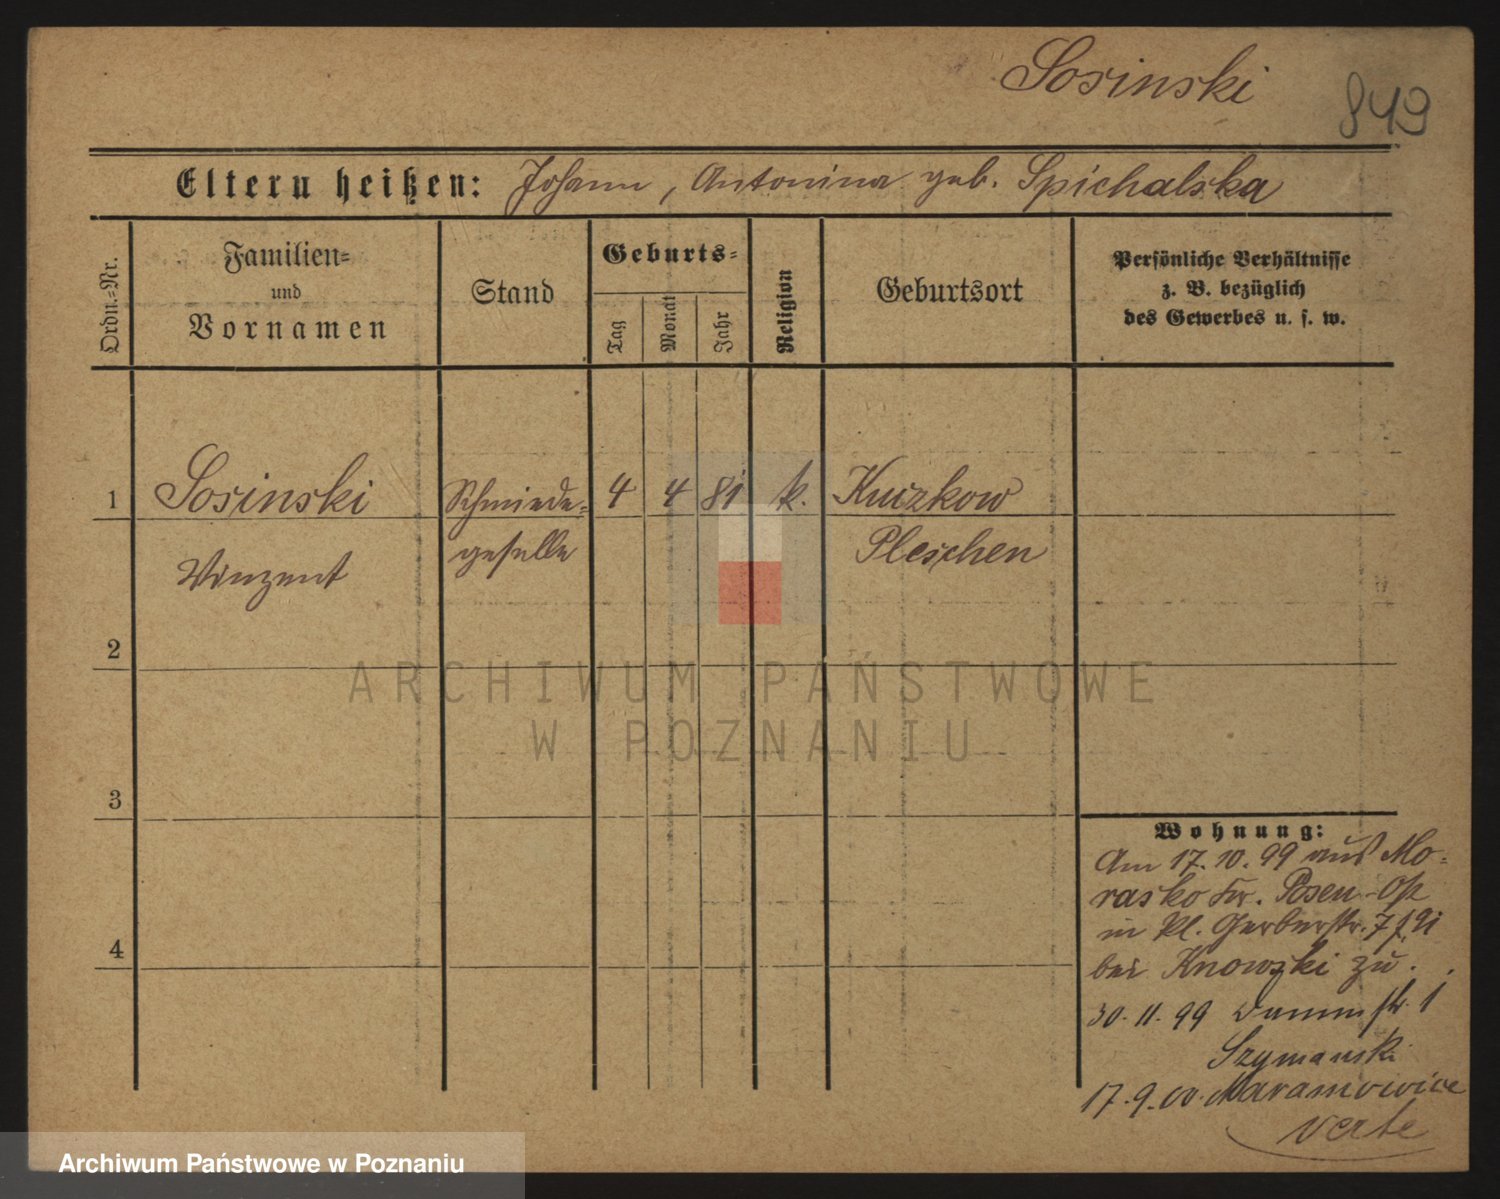 Sosinski
849
Eltern heißen: Johann, Antonina geb. Spichalska
Ordn.-Nr.
Familien-
und
Vornamen
Stand
Geburts-
Tag
Monat
Jahr
Religion
Geburtsort
Persönliche Verhältnisse
z. B. bezüglich
des Gewerbes u. s. w.
1 Sosinski Schmiede- 4 4 81 k. Kuczkow
geselle Pleschen
Vinzent
2
ARCHIWUM PAŃSTWOWE
W POZNANIU
3
Wohnung:
Am 17.10.99 aus Mo-
rasko Kr. Posen-Ost
in Kl. Gerberstr. 7
4
bei Knowski zu.
30.11.99 Dammstr. 1
Szymanski
17.9.00. Naramowice
verte
Archiwum Państwowe w Poznaniu